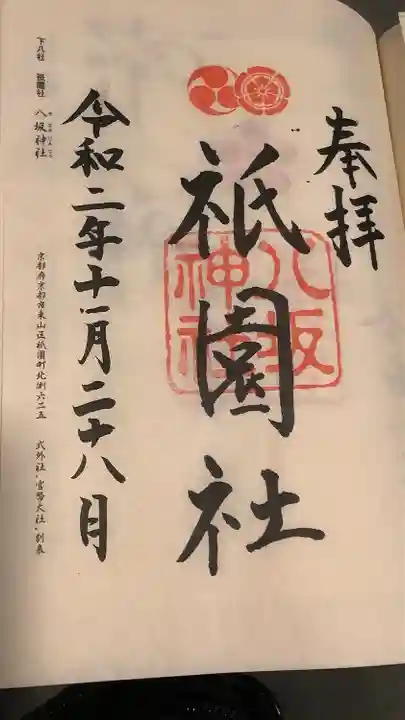 奉拝
祇園社
八坂
神社
令和二年十一月二十八日
下八社 祇園社 八坂神社
京都府京都市東山区祇園町北側六二五 式外社・官幣大社・別表